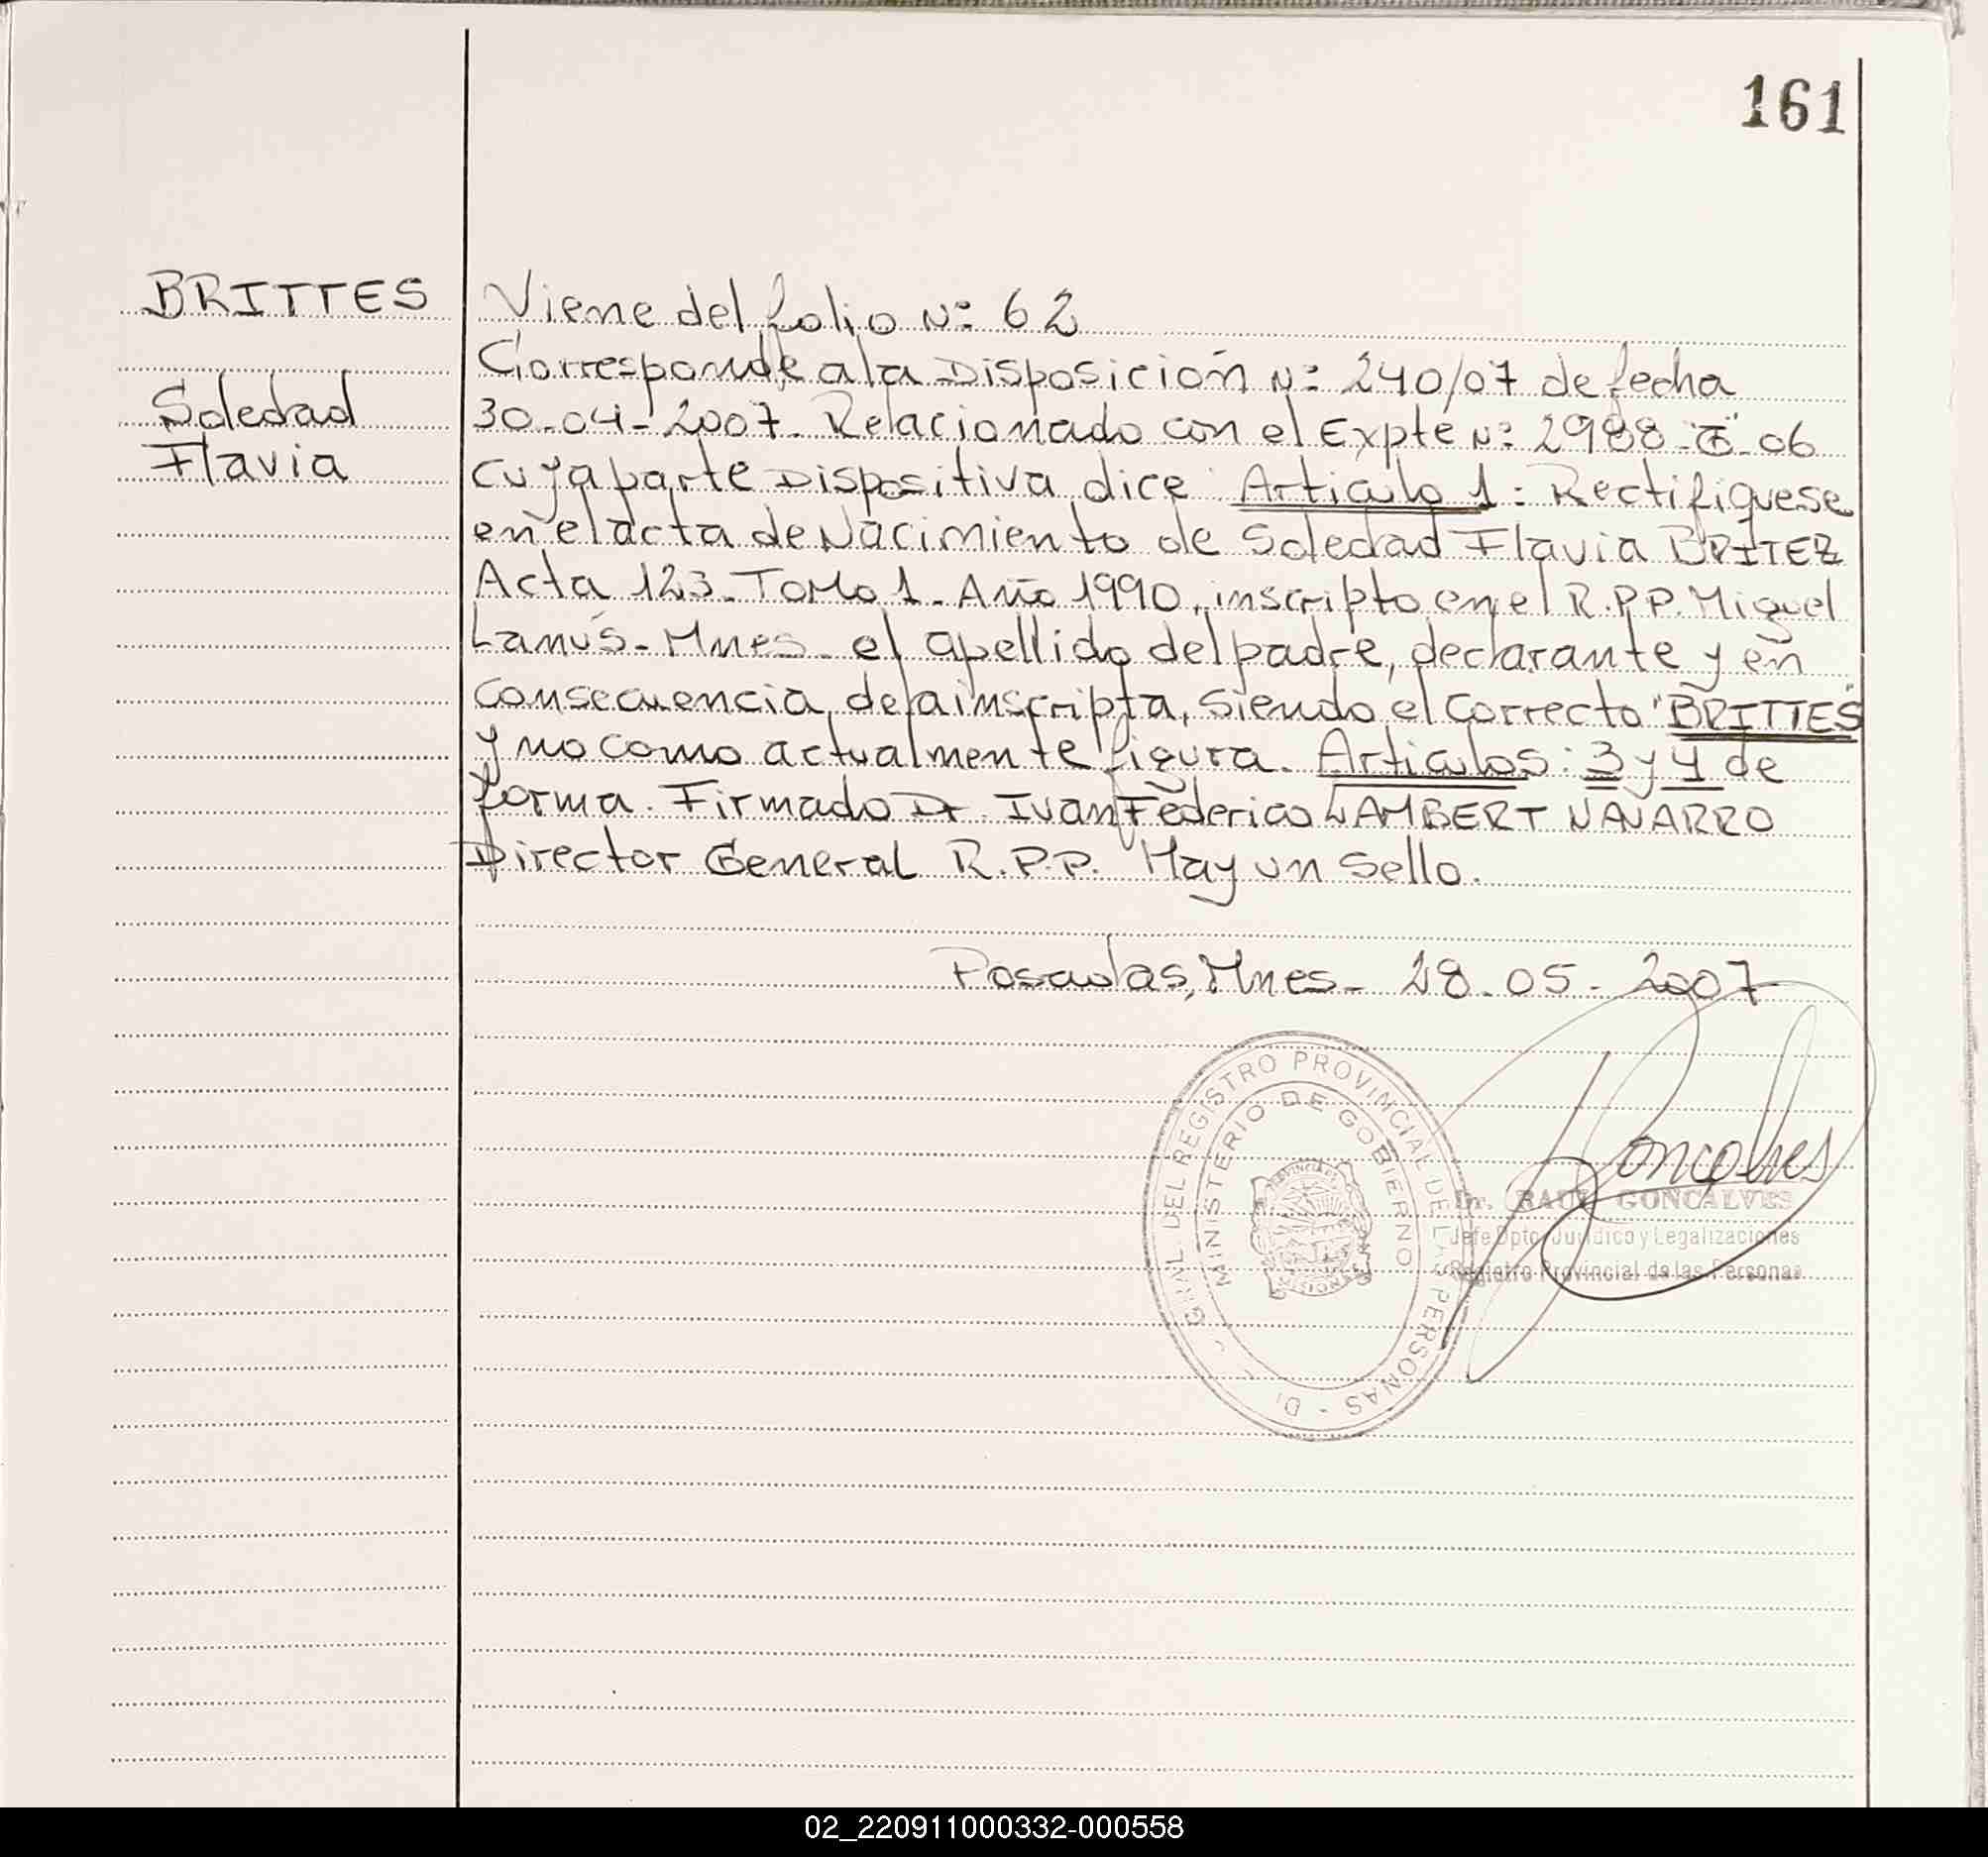 161
BRITTES
Soledad
Flavia
Viene del folio N: 62
Corresponde a la Disposición N: 240/07 de fecha
30-04-2007. Relacionado con el Expte N: 2988 06
cuya parte Dispositiva dice Articulo 1: Rectifiquese
en el acta de Nacimiento de Soledad Flavia BRITEZ
Acta 123. Tomo 1. Año 1990, inscripto en el R.P.P. Miguel
Lanús - Mnes - el apellido del padre, declarante y en
consecuencia de la inscripta, siendo el correcto "BRITTES"
y no como actualmente figura. Articulos: 3 y 4 de
forma. Firmado Dr. Ivan Federico LAMBERT NAVARRO
Director General R.P.P. Hay un Sello.
Posadas, Mnes - 28.05.2007
GRAL. DEL REGISTRO PROVINCIAL DE LAS PERSONAS - DI
MINISTERIO DE GOBIERNO
Goncalves
Dr. RAUL GONCALVES
Jefe Dpto. Jurídico y Legalizaciones
Registro Provincial de las Personas
02_220911000332-000558